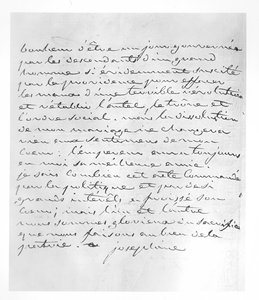 bonheur d'être un jour gouvernée
par les descendants d'un grand
homme si evidemment suscité
par la providence pour effacer
les maux d'une terrible révolution
et rétablir l'autel, le trône et
l'ordre social. mais la dissolution
de mon mariage ne changera
rien aux sentimens de mon
coeur: l'empereur aura toujours
en moi sa meilleure amie.
je sais combien cet acte commandé
par la politique et par de si
grands interêts a froissé son
coeur; mais l'un et l'autre
nous sommes glorieux du sacrifice
que nous faisons au bien de la
patrie.
josephine